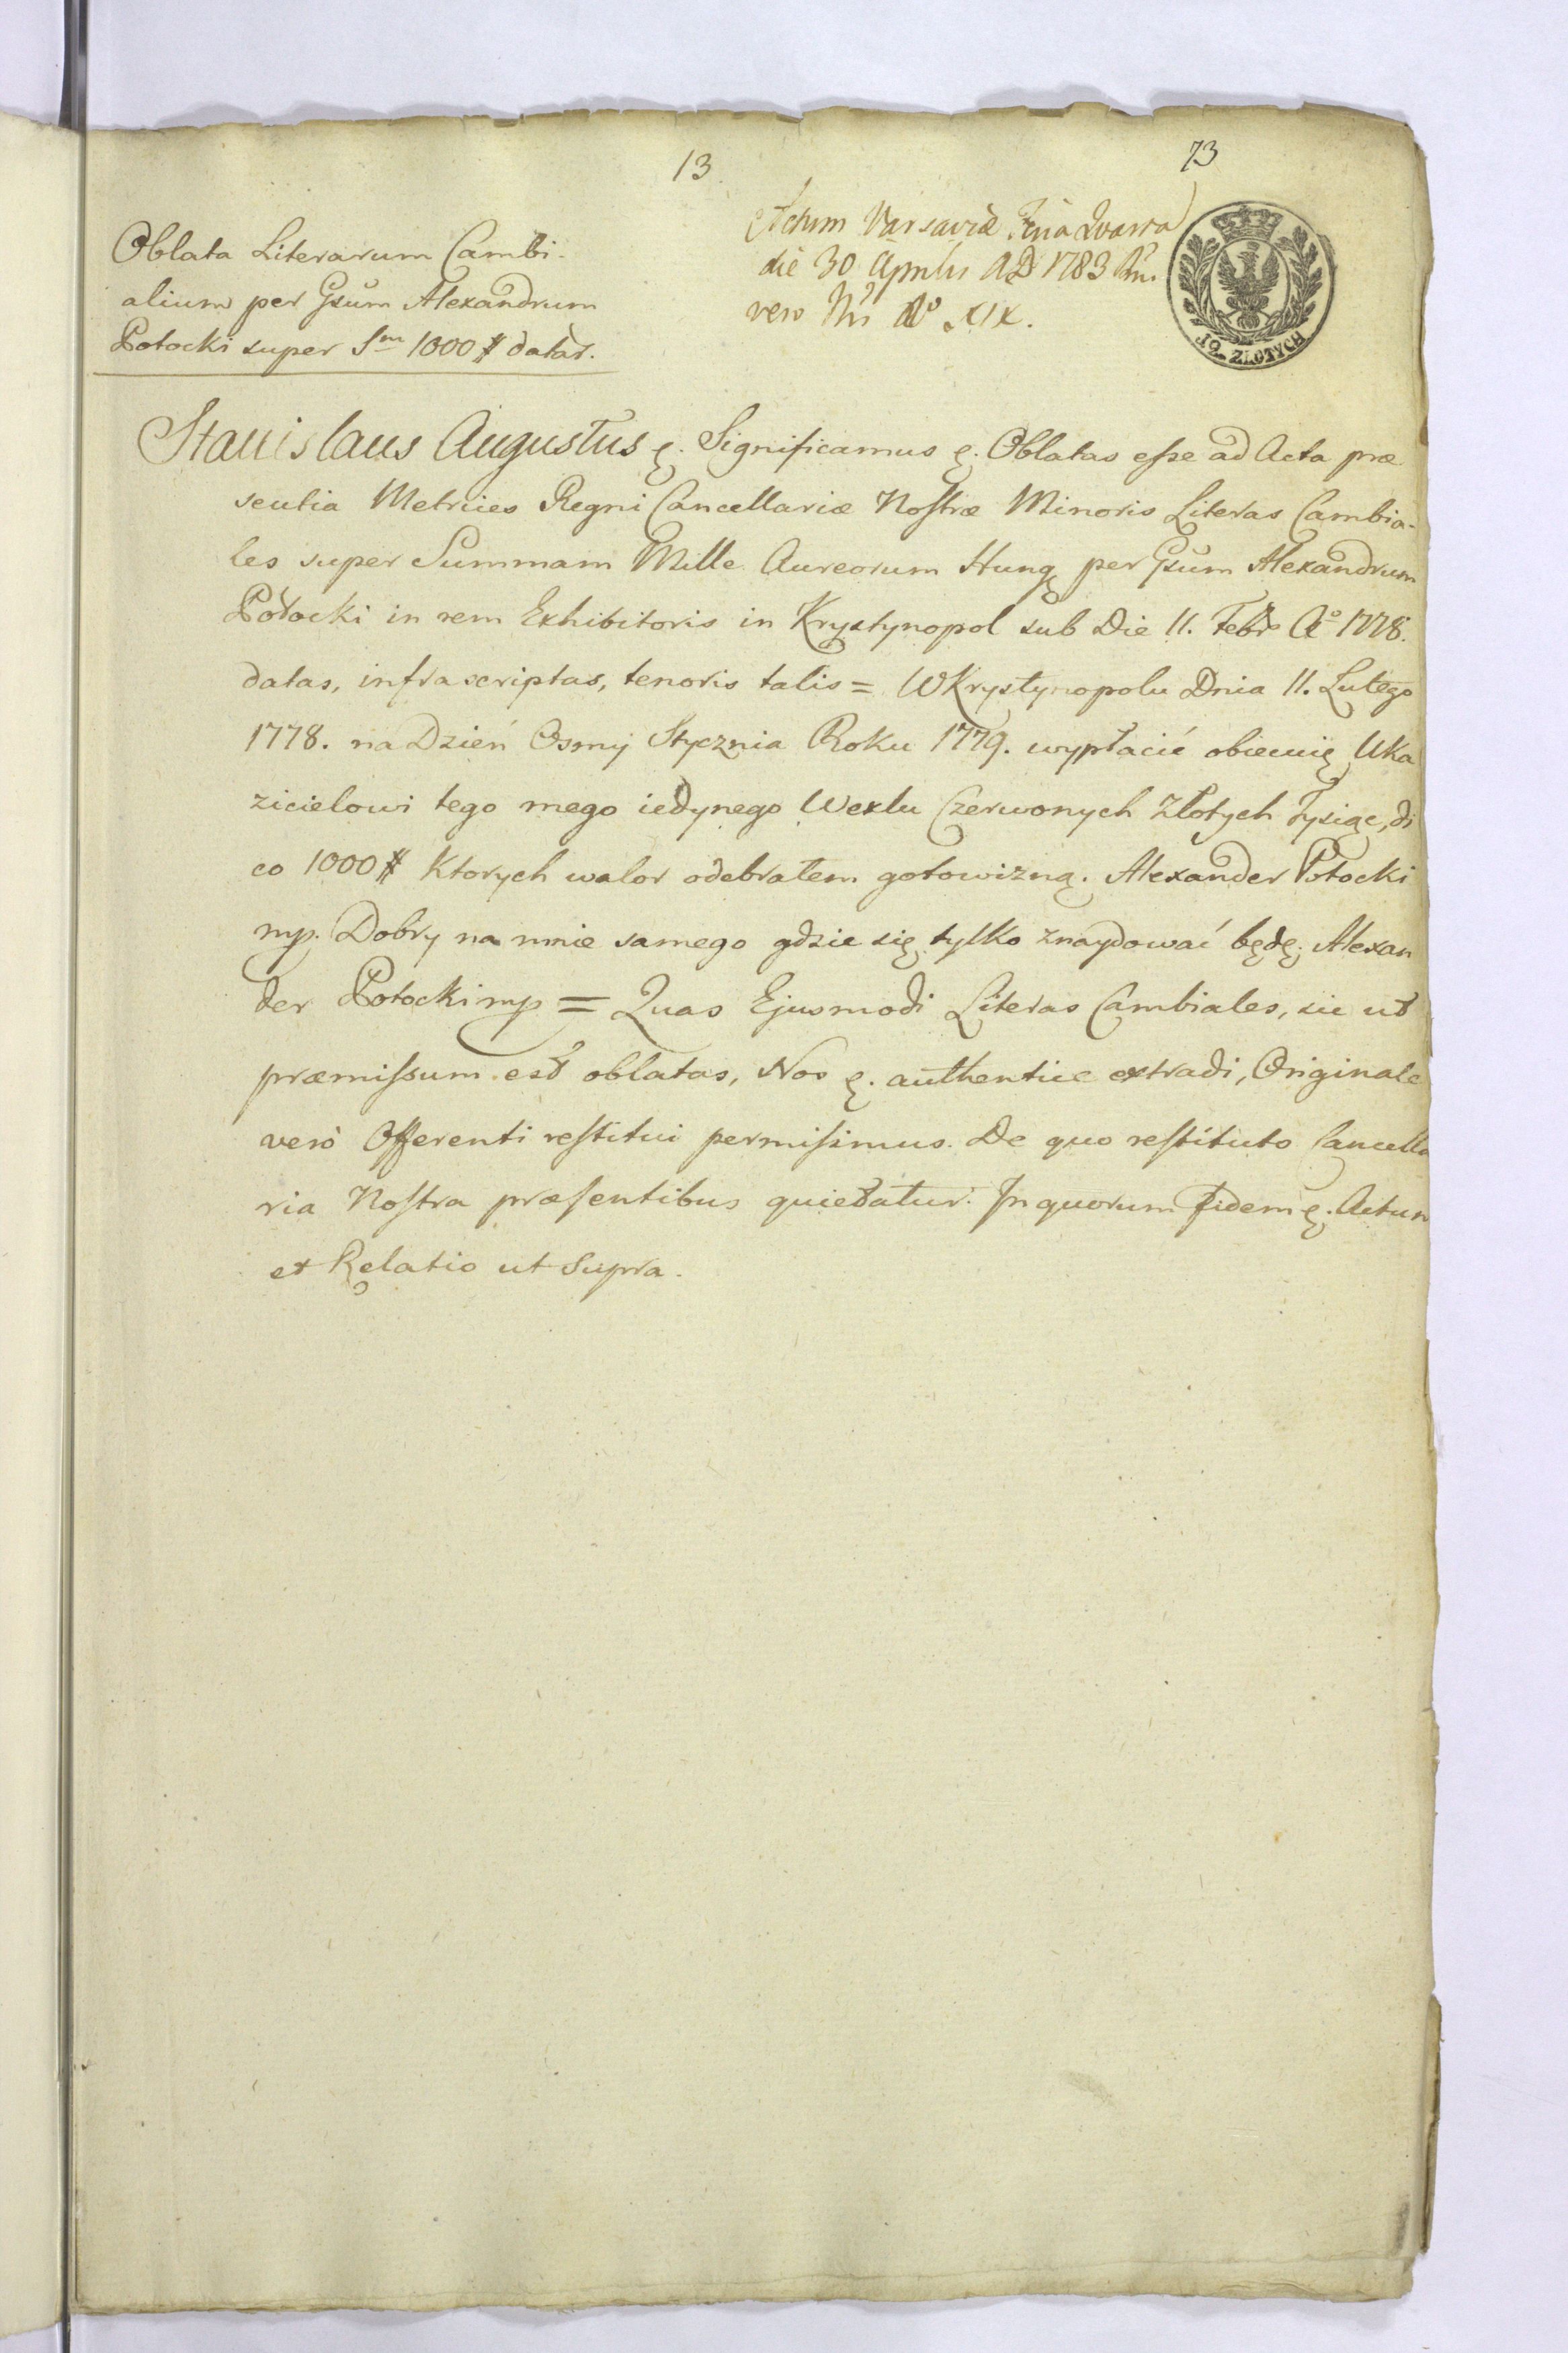 13
73
Oblata Literarum Cambi-
alium per Gsum Alexandrum
Potocki super Sm 1000 # datar.
Actum Varsaviæ Feria Quarta
die 30 Aprilis AD 1783 Rn.
vero Nri Ao XIX.
12 ZŁOTYCH
Stanislaus Augustus ę. Significamus ę. Oblatas eſse ad Acta præ
sentia Metrices Regni Cancellariæ Noſtræ Minoris Literas Cambia-
les super Summam Mille Aureorum Hung per Gsum Alexandrum
Potocki in rem Exhibitoris in Krystynopol sub Die 11. Febr Ao 1778.
datas, infrascriptas, tenoris talis = W Krystynopolu Dnia 11. Lutego
1778. na Dzień Osmy Stycznia Roku 1779. wypłacić obiecuię Uka
zicielowi tego mego iedynego Wexlu Czerwonych Złotych Tysiąc, di
co 1000 # Ktorych walor odebrałem gotowizną. Alexander Potocki
mp. Dobry na mnie samego gdzie się tylko znaydować będę. Alexan
der Potocki mp = Quas Ejusmodi Literas Cambiales, sic ut
præmiſsum est oblatas, Nos ę. authentice extradi, Originale
verò Offerenti reſtitui permiſimus. De quo reſtituto Cancella
ria Noſtra præſentibus quietatur. In quorum Fidem ę. Actum
et Relatio ut Supra.